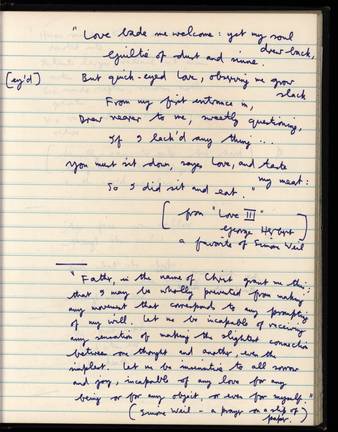 " Love bade me welcome : yet my soul
drew back,
Guiltie of dust and sinne.
[ey'd] But quick-eyed Love, observing me grow
slack
From my first entrance in,
Drew nearer to me, sweetly questioning,
If I lack'd any thing ...
You must sit down, sayes Love, and taste
my meat :
So I did sit and eat. "
[ from " Love III "
George Herbert ]
a favorite of Simon Weil
" Father, in the name of Christ grant me this :
that I may be wholly prevented from making
any movement that corresponds to any prompting
of my will. Let me be incapable of receiving
any sensation of making the slightest connection
between one thought and another, even the
simplest. Let me be insensitive to all sorrow
and joy, incapable of any love for any
being or for any object, or even for myself. "
( Simone Weil - a prayer on a slip of
paper. )